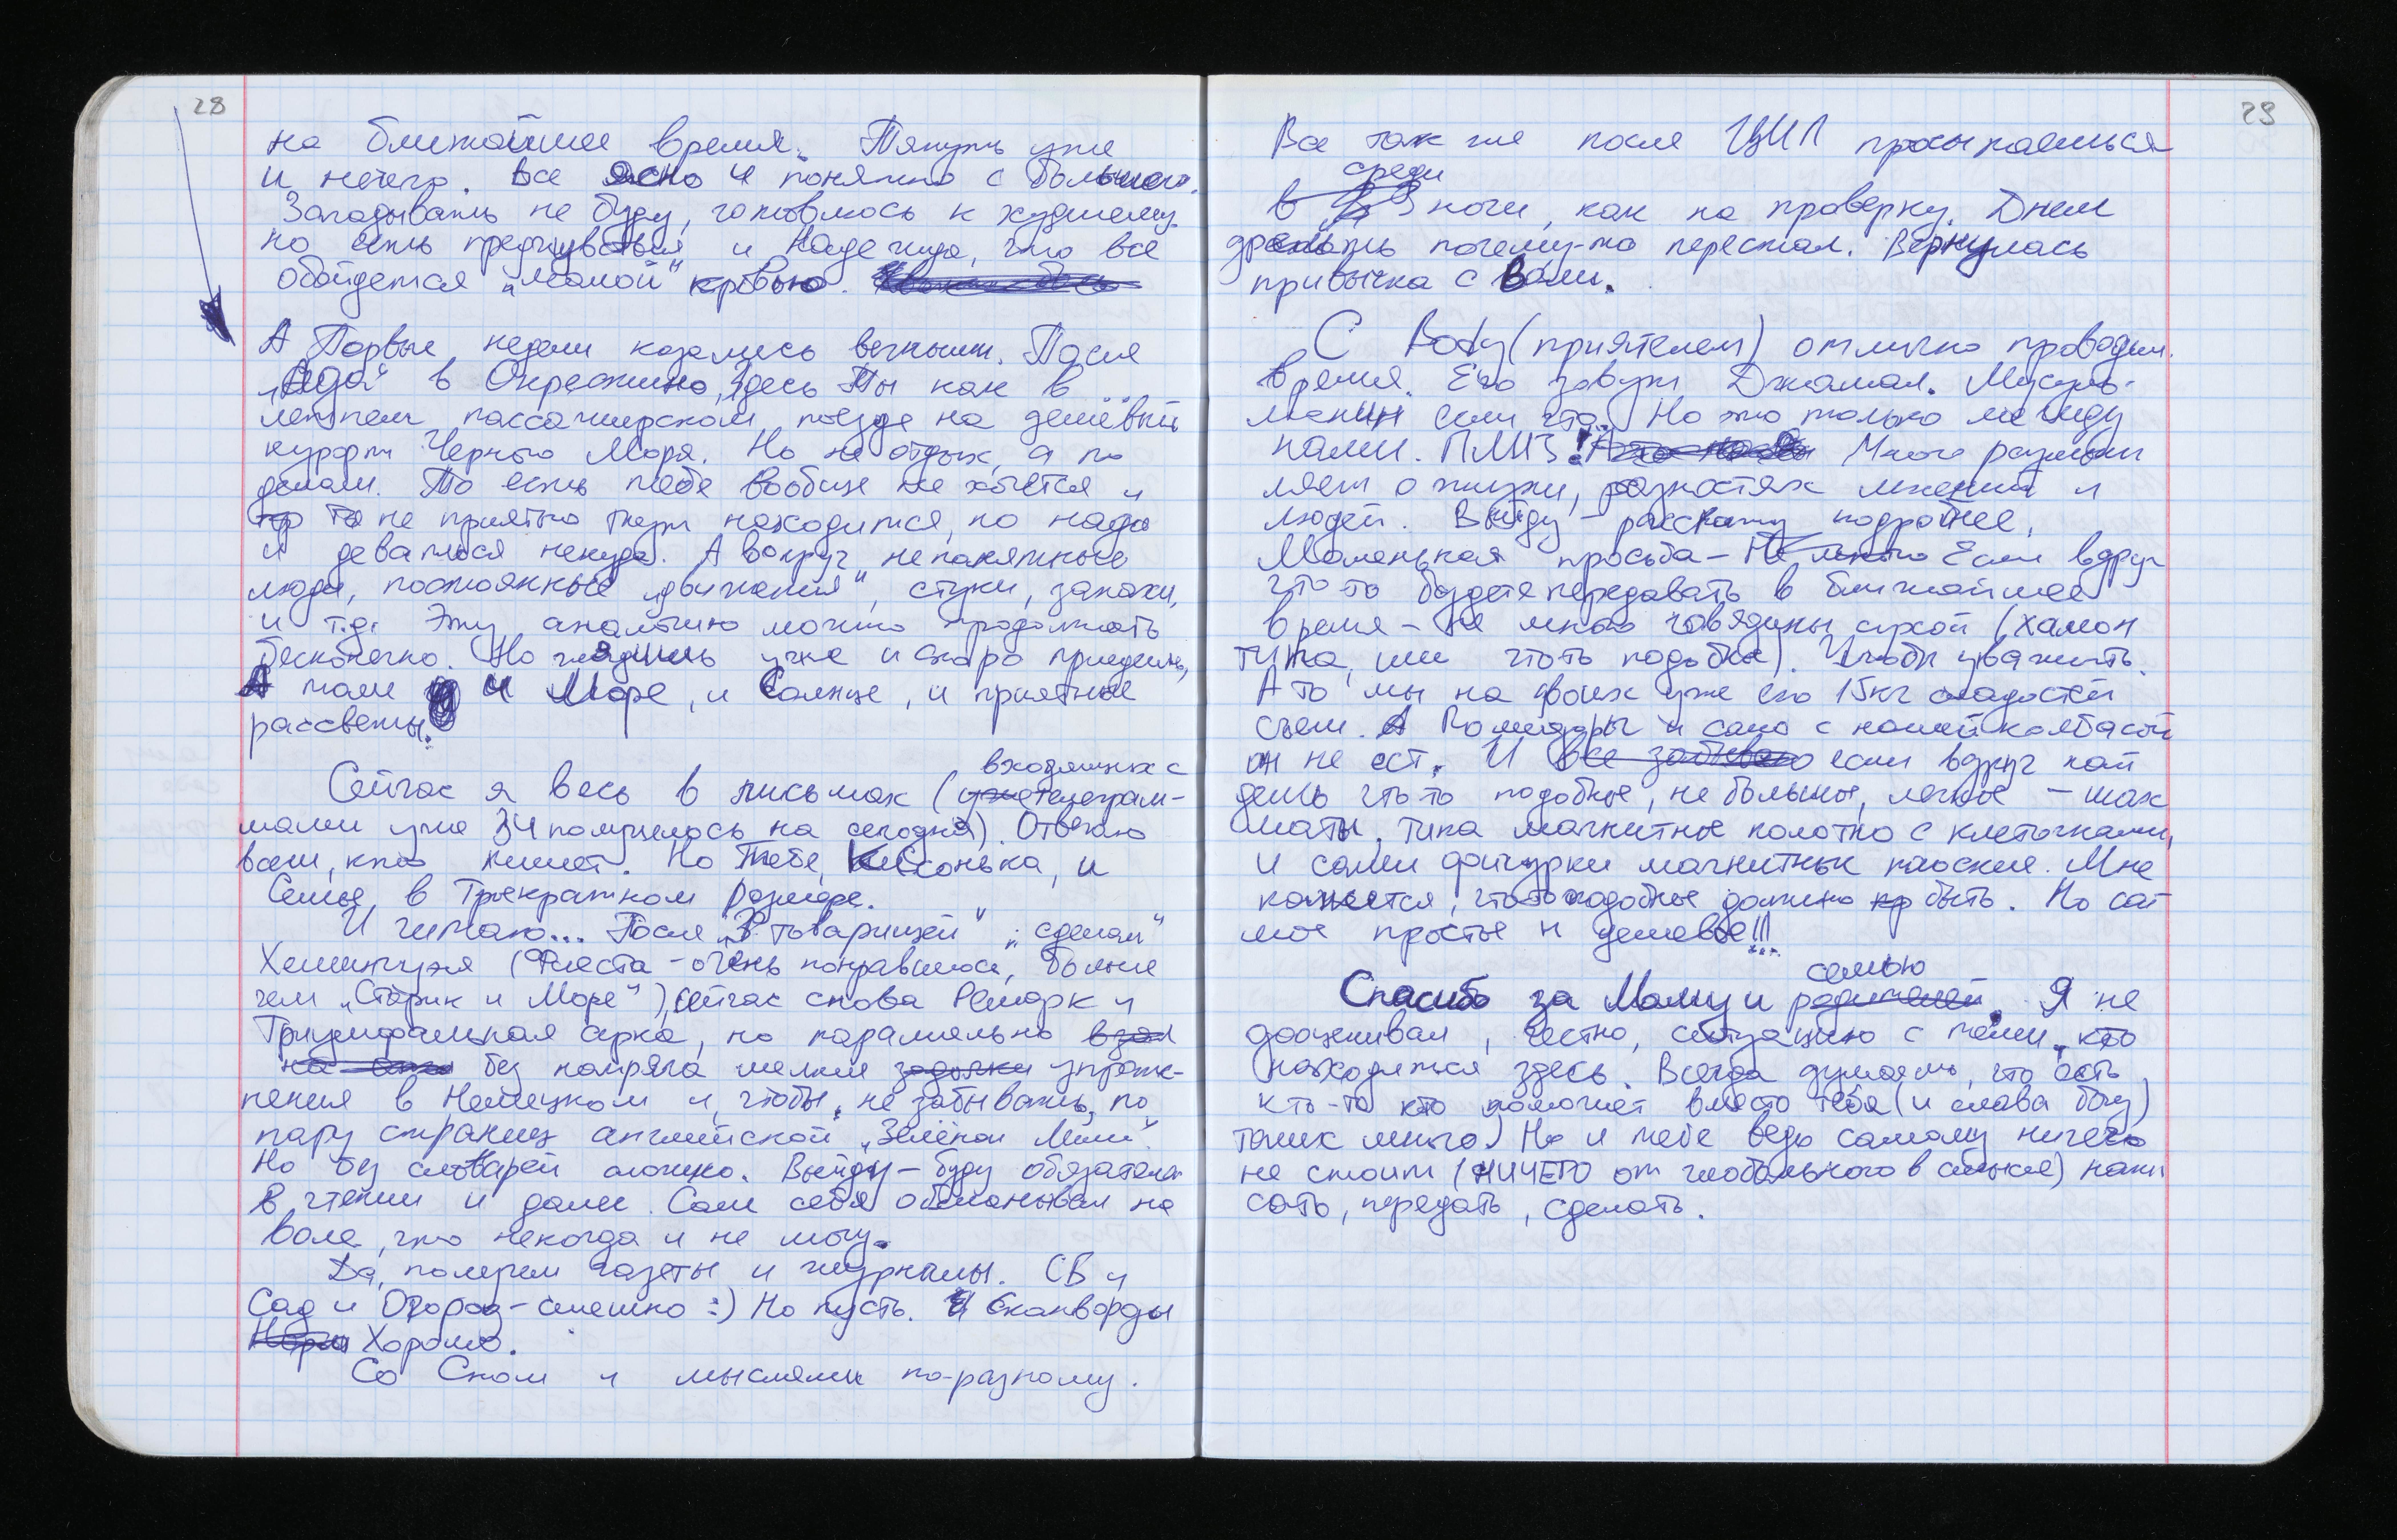 28
на ближайшее время. Тянуть уже
и нечего. Все ясно и понятно с
Загадывать не буду, готовлюсь к худшему.
но есть предчувствия и надежда, что все
обойдется „малой" кровью.
А Первые недели казались вечными. После
„Ада" в Окрестино, здесь Ты как в
летнем пассажирском поезде на дешёвый
курорт Черного Моря. Но не отдых, а по
делам. То есть тебе вообще не хочется и
не приятно находится, но надо
и деваться некуда. А вокруг непонятные
люди, постоянные „движения", стуки, запахи,
и т.д. Эту аналогию можно продолжать
бесконечно. Но глядишь уже и скоро приедешь,
А там и Море, и Солнце, и приятные
рассветы.
Сейчас я весь в письмах (входящих с телеграм-
мами уже 34 получилось на сегодня). Отвечаю
всем, кто пишет. Но Тебе, Кисонька, и
Семье, в Трехкратном размере.
И читаю... После „3 товарищей" „сделал"
Хемингуэя (Фиеста - очень понравилось, больше
чем „Старик и Море"), сейчас снова Ремарк и
Триумфальная арка, но паралельно взял
без напряга мелкие задачки упраж-
нения в Немецком и, чтобы не забывать, по
пару страниц английской „Зелёной Мили".
Но без словарей сложно. Выйду - буду обязательно
в чтении и далее. Сам себя обманывал на
воле, что некогда и не могу.
Да, получаем газеты и журналы. СВ и
Сад и Огород - смешно :) Но пусть. И Сканворды
Хорошо.
Со Сном и мыслями по-разному.
29
Все так же после ЦИП просыпаешься
в среди ночи, как на проверку. Днем
дремать почему-то перестал. Вернулась
привычка с Воли.
С Body (приятелем) отлично проводим
время. Его зовут Джамал. Мусуль-
манин если что. Но это только между
нами. ПЛИЗ! Много размыш
ляем о жизни, разностях мнений и
людей. Выйду - расскажу подробнее.
Маленькая просьба - Не много Если вдруг
что то будете передавать в ближайшее
время - не много говядины сухой (хамон
типа, или чтоть подобное). Чтобы уважить.
А то мы на двоих уже его 15кг сладостей
съели. А Помидоры и сало с нашей колбасой
он не ест. И все забываю если вдруг най
дешь что то подобное, не большое, легкое - шах
маты, типа магнитное полотно с клеточками,
и сами фигурки магнитные плоские. Мне
кажется, что то подобное должно быть. Но са
мое простое и дешевое!!!
Спасибо за Маму и семью родителей. Я не
дооценивал, честно, ситуацию с теми, кто
находится здесь. Всегда думаешь, что есть
кто-то кто поможет вместо тебя (и слава богу)
таких много) Но и тебе ведь самому ничего
не стоит (НИЧЕГО от глобального в смысле) напи
сать, передать, сделать.